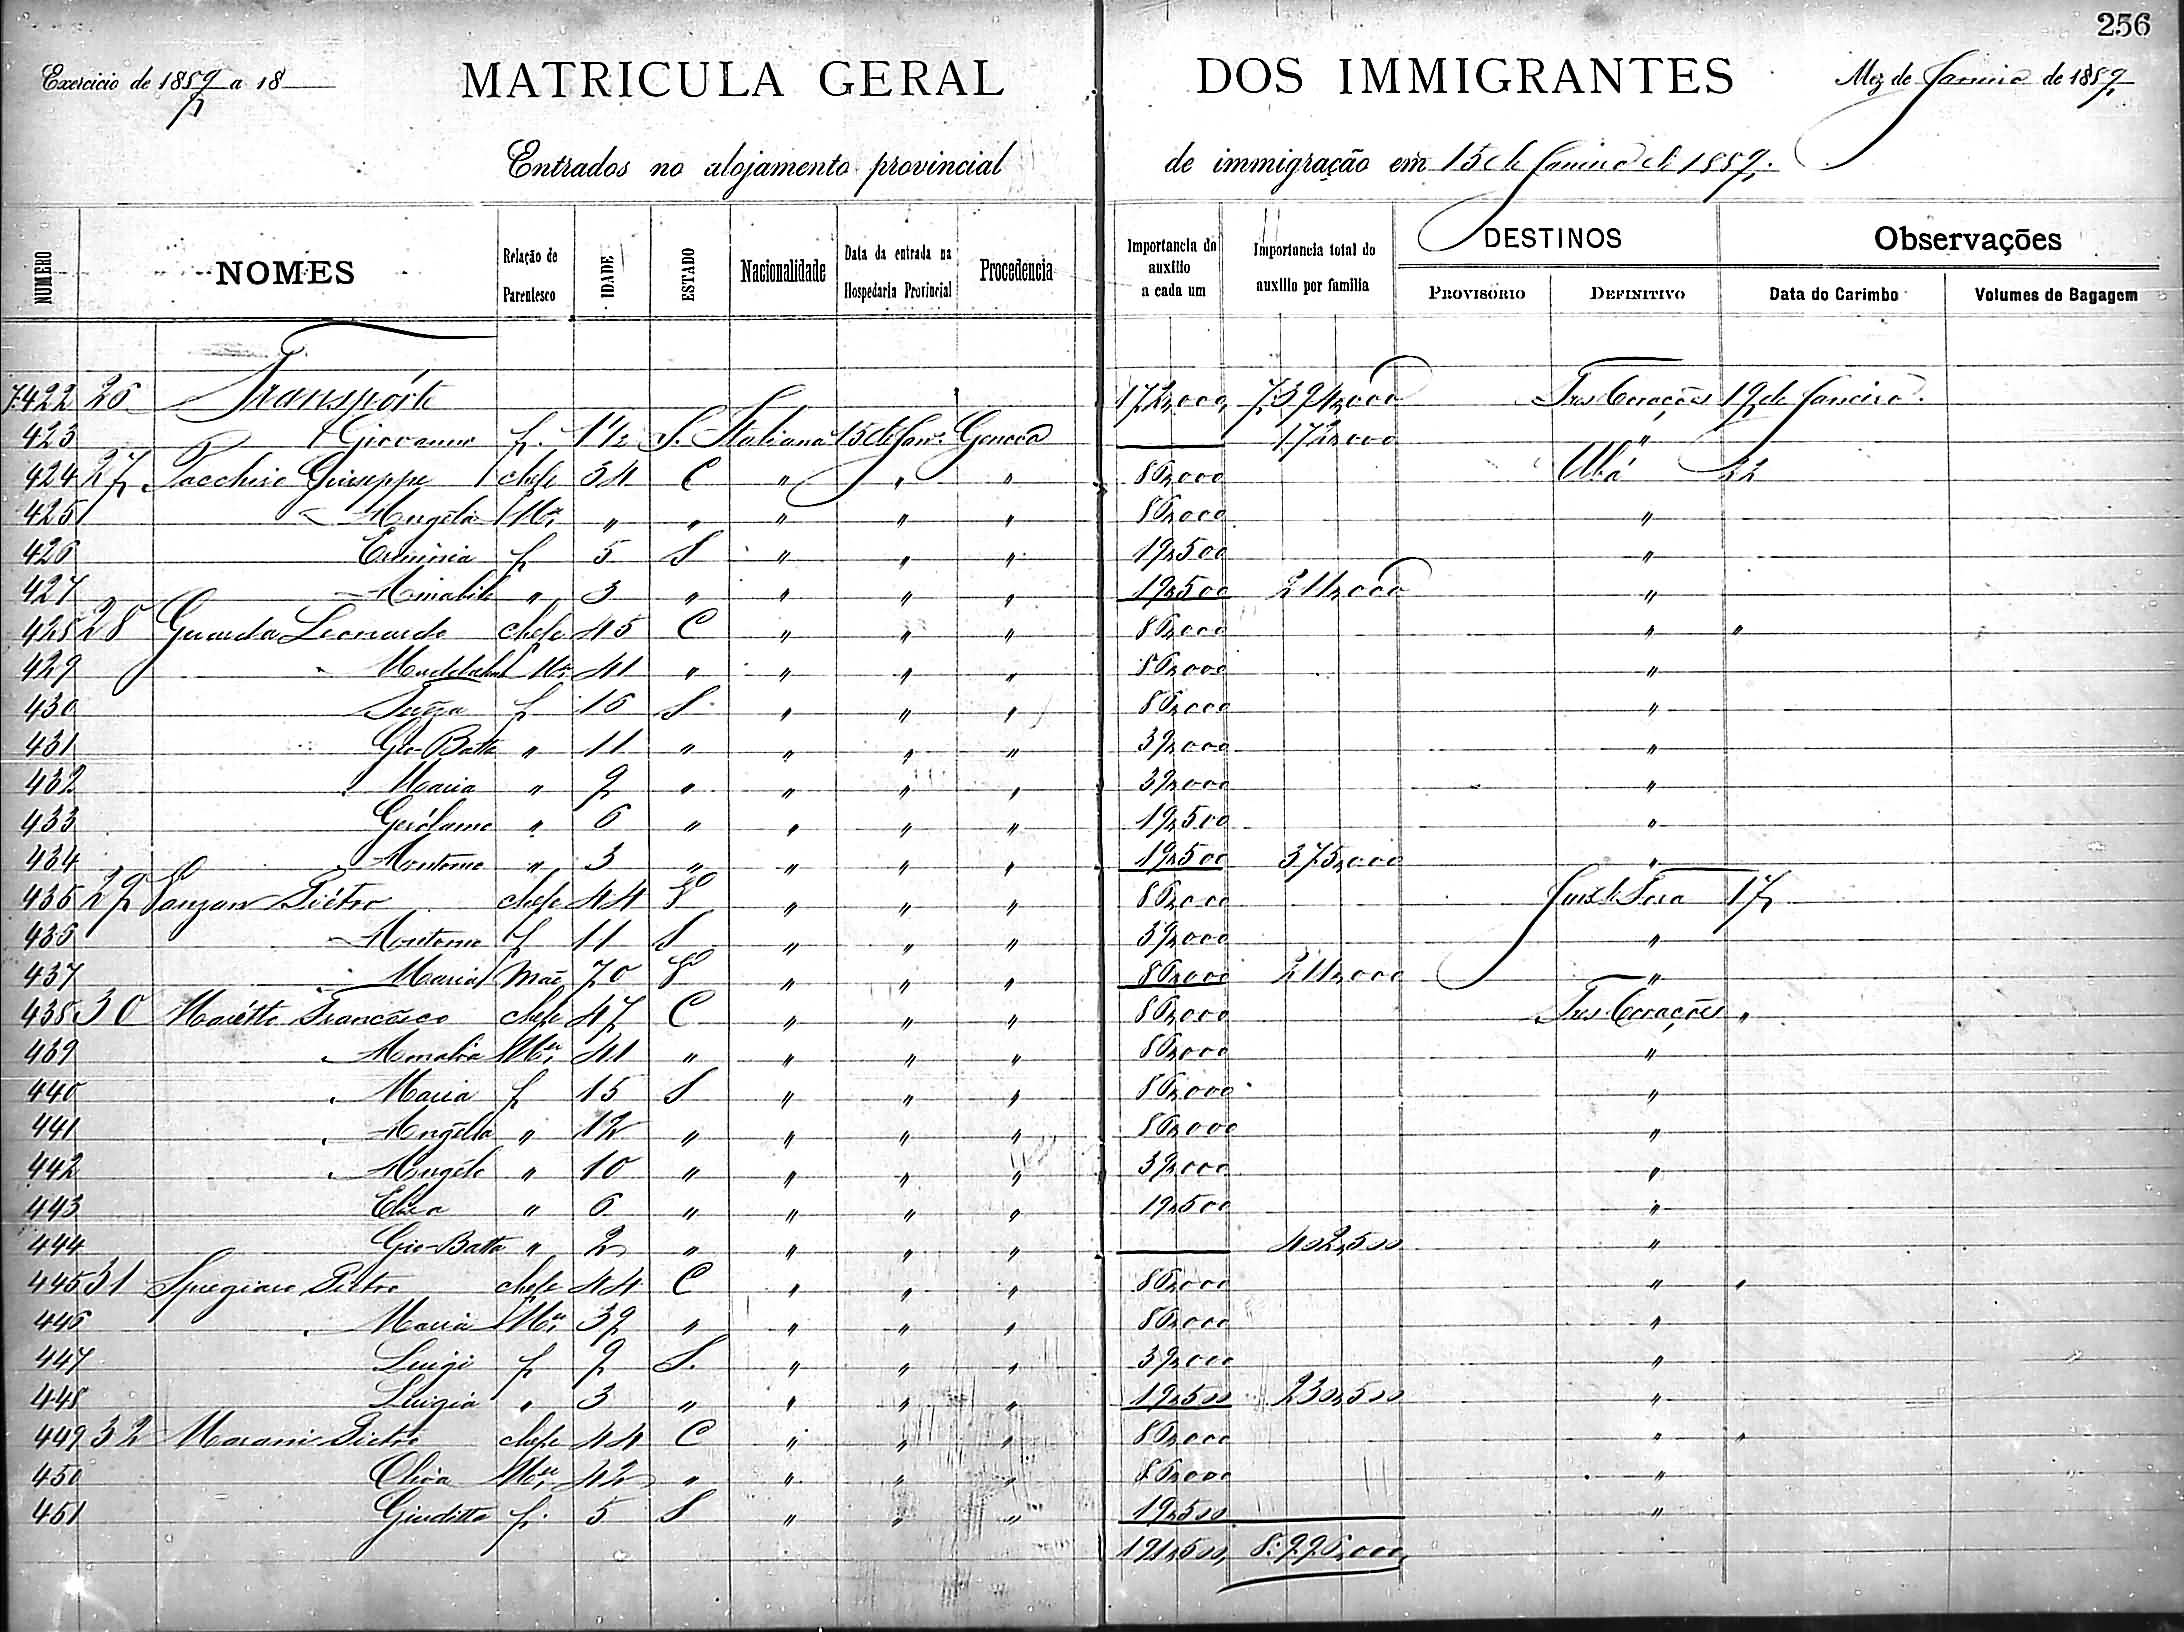 256
Exercicio de 1889 a 18
MATRICULA GERAL DOS IMMIGRANTES
Mez de Janeiro de 1889
Entrados no alojamento provincial de immigração em 15 de Janeiro de 1889.
NUMERO NOMES Relação de Parentesco IDADE ESTADO Nacionalidade Data da entrada na Hospedaria Provincial Procedencia Importancia do auxilio a cada um Importancia total do auxilio por familia DESTINOS PROVISORIO DEFINITIVO Observações Data do Carimbo Volumes de Bagagem
7.422 26 Transpórte 172,000 7,394,000 Tres Corações 19 de Janeiro
423 " Giovanni f. 1 1/2 S. Italiana 15 de Janº Genova 172,000 "
424 27 Giuseppe chefe 34 C " " " 86,000 Ubá 22
425 " Angéla Mer " " " " " 86,000 "
426 Erminia f 5 S " " " 19,500 "
427 Amabile " 3 " " " " 19,500 211,000 "
428 28 Guarda Leonardo chefe 45 C " " " 86,000 " "
429 " Maddalena Mer 41 " " " " 86,000 "
430 f 16 S " " " 86,000 "
431 Gio Batta " 11 " " " " 39,000 "
432 Maria " 9 " " " " 39,000 "
433 Gerólamo " 6 " " " " 19,500 "
434 Antonio " 3 " " " " 19,500 375,000 "
435 29 Piétro chefe 44 V " " " 86,000 Juiz de Fora 17
436 " Antonio f 11 S " " " 39,000 "
437 " Maria Mãe 70 V " " " 86,000 211,000 "
438 30 Mariétto Francésco chefe 47 C " " " 86,000 Tres Corações "
439 " Amalia Mer 41 " " " " 86,000 "
440 " Maria f 15 S " " " 86,000 "
441 " Angélla " 12 " " " " 86,000 "
442 " Angélo " 10 " " " " 39,000 "
443 Elisa " 6 " " " " 19,500 "
444 Gio-Batta " 2 " " " " 402,500 "
445 31 Pietro chefe 44 C " " " 86,000 " "
446 " Maria Mer 39 " " " " 86,000 "
447 Luigi f 9 S. " " " 39,000 "
448 Luigia " 3 " " " " 19,500 230,500 "
449 32 Marani Pietro chefe 44 C " " " 86,000 " "
450 Mer 42 " " " " 86,000 "
451 Giuditta f. 5 S " " " 19,500 "
191,500 8:996,000